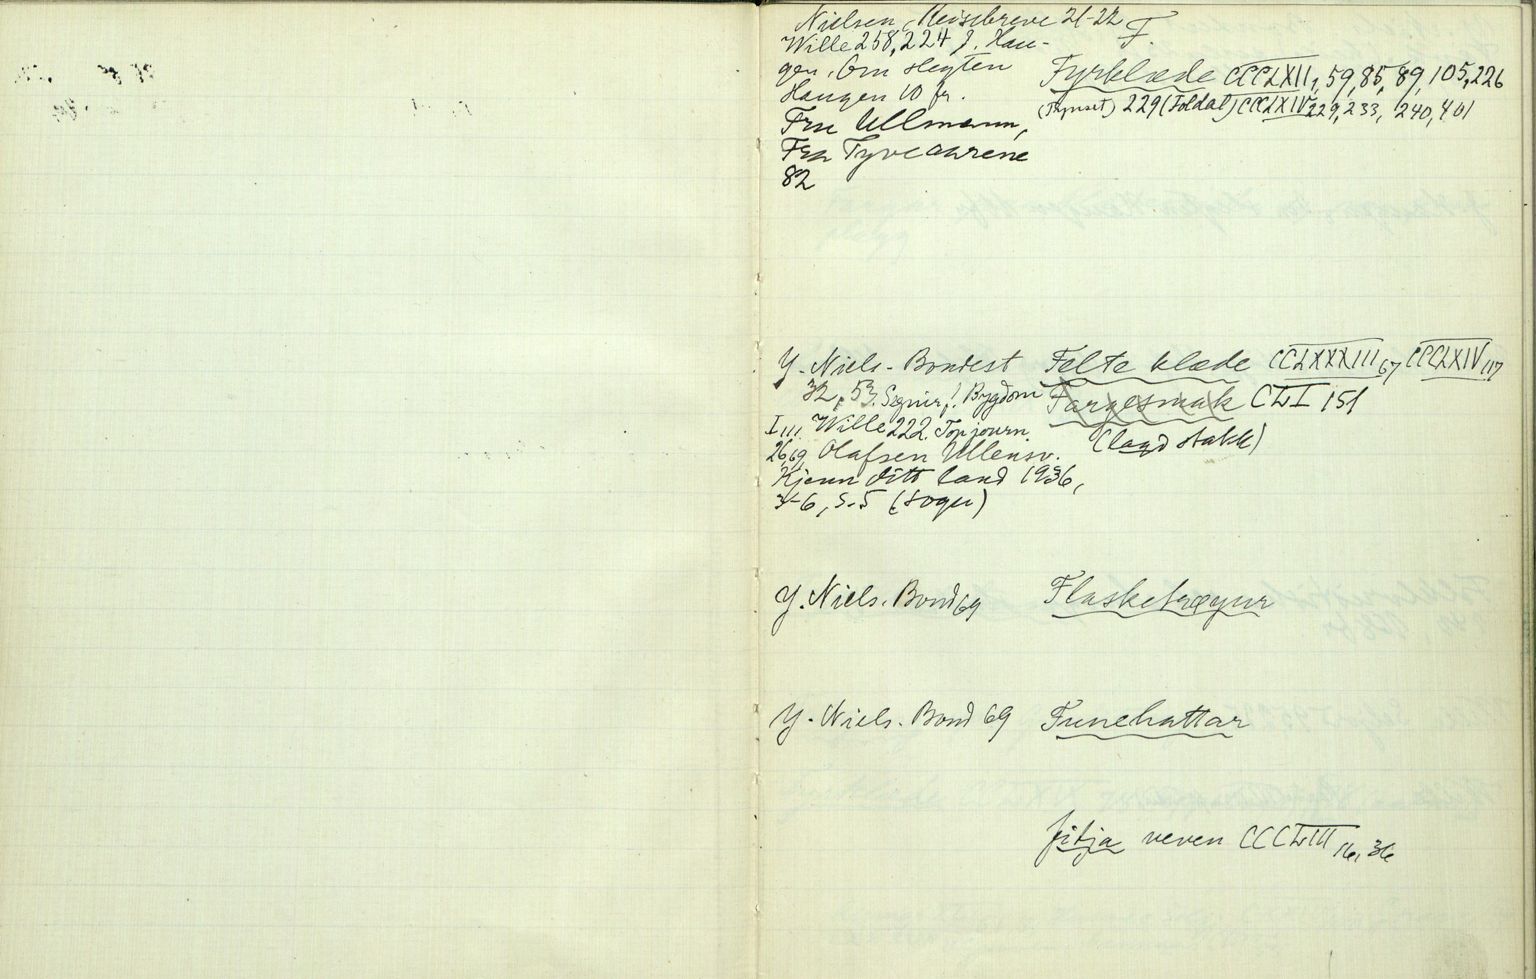 Nielsen, Reisebreve 21-22
F
Wille 258, 224 J. Hau-
gen, Om Høgten
Haugen 10 fr.
Fru Ullmann,
Fra Tyveaarene
82
Fyrklæde CCCLXII, 59, 85, 89, 105, 226
(Tynset) 229 (Foldal) CCCLXIV 229, 233, 240, 401
Y. Niels. Bondest
32, 53. Segnir f. Bygdom
I 111. Wille 222. Top journ.
26, 69 Olafsen Ullensv.
Kjenn ditt land 1936,
3-6, s. 5 (Sogn)
Felte klæde CCLXXXIII 67 CCCLXIV 117
Fargesmak CLI 151
(lagd stakk)
Y. Niels. Bond 69 Flasketrøyur
Y. Niels. Bond 69 Tunehattar
fitja veven CCCLIII 16, 36